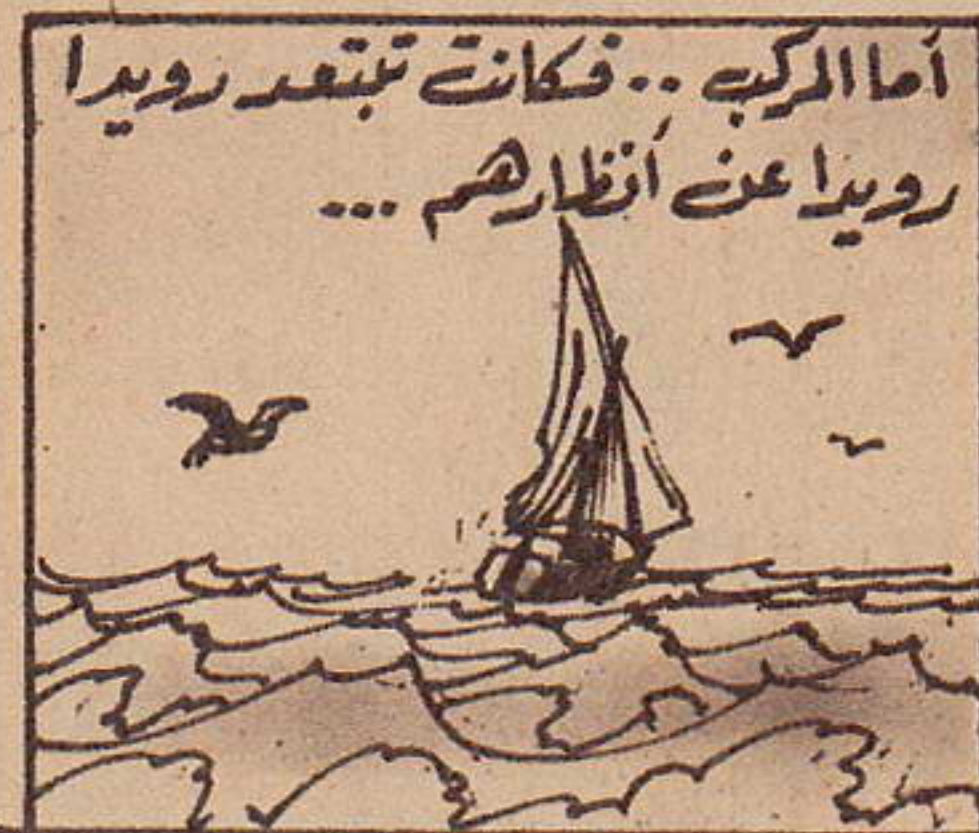 أما المركب .. فكانت تبتعد رويدا
رويدا عن أنظارهم ...